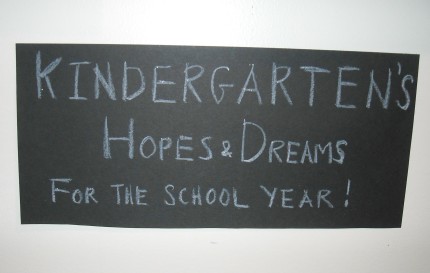 KINDERGARTEN'S
HOPES & DREAMS
FOR THE SCHOOL YEAR!